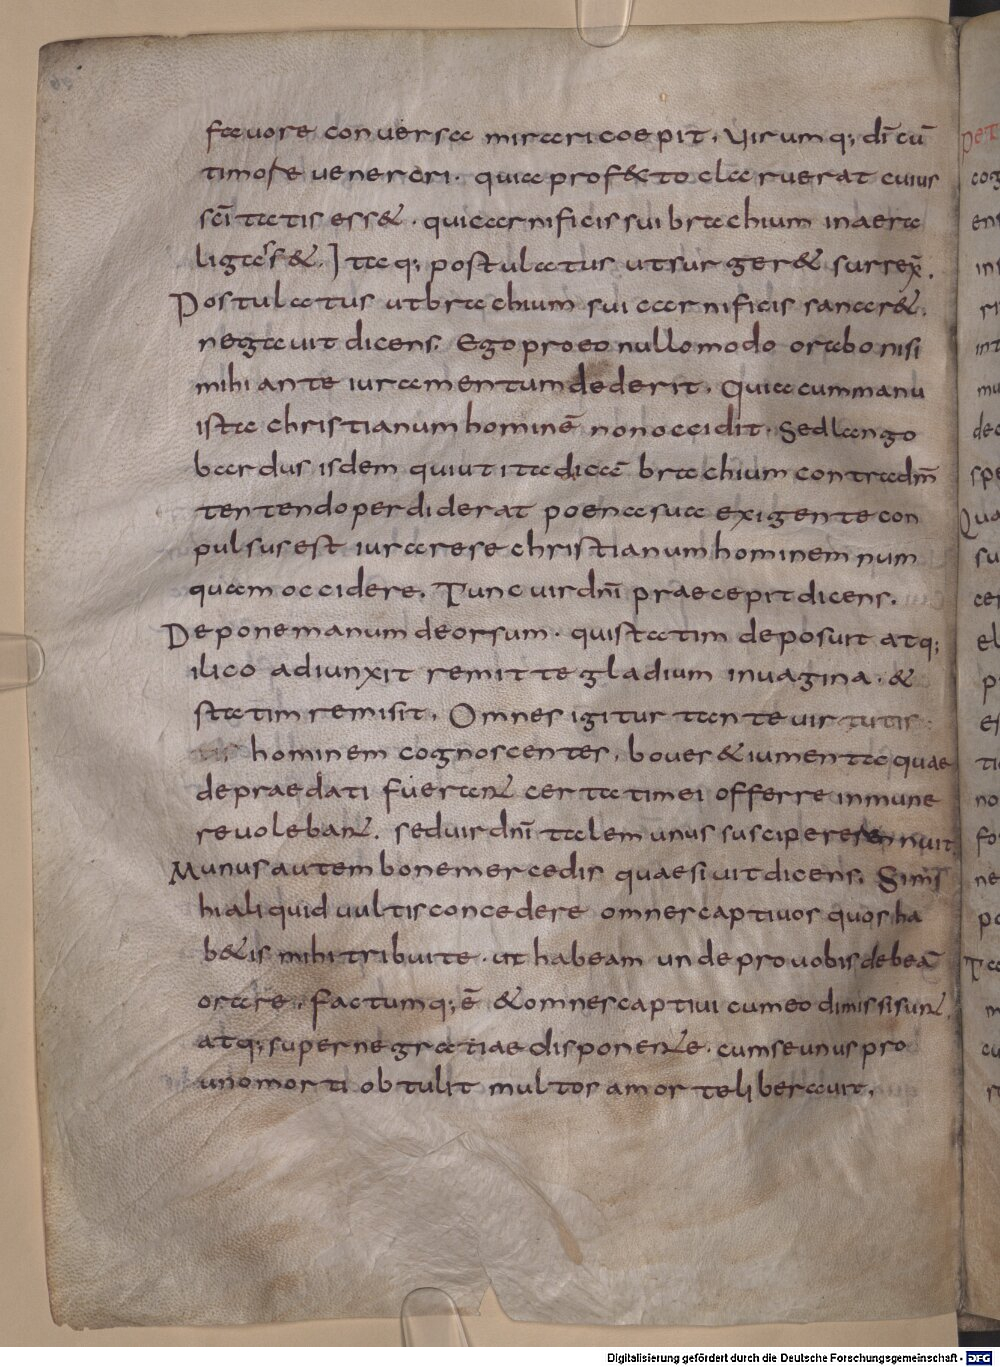 fauore conuersa mirari coepit. Virumq; dī cū
timore venerari. quia profecto claruerat cuius
scītatis ess&. qui carnificis sui brachium in aera
ligass&. Itaq; postulatus ut surger& surrex̄.
Postulatus ut brachium sui carnificis sanar&.
negauit dicens. Ego pro eo nullomodo orabo nisi
mihi ante iuramentum dederit. Quia cum manu
ista christianum hominē non occidit. Sed lango
bardus isdem qui ut ita dicā brachium contra dm̄
tentendo perdiderat poena sua exigente con
pulsus est iurare se christianum hominem num
quam occidere. Tunc uir dnī praecepit dicens.
Depone manum deorsum. qui statim deposuit atq;
ilico adiunxit remitte gladium in uagina. &
statim remisit. Omnes igitur tante uirtutis
hominem cognoscentes. boues & iumenta quae
depraedati fuerant certatim ei offerre in mune
re uolebant. sed uir dnī talem unus suscipere rennuit
Munus autem bone mercedis quaesiuit dicens. Si m̄
hi aliquid uultis concedere omnes captiuos quos ha
b&is mihi tribuite. ut habeam unde pro uobis debeā
orare. factumq; ē & omnes captiui cum eo dimissi sunt.
atq; superne gratiae disponente. cum se unus pro
uno morti obtulit multos a morte liberauit.
Digitalisierung gefördert durch die Deutsche Forschungsgemeinschaft - DFG